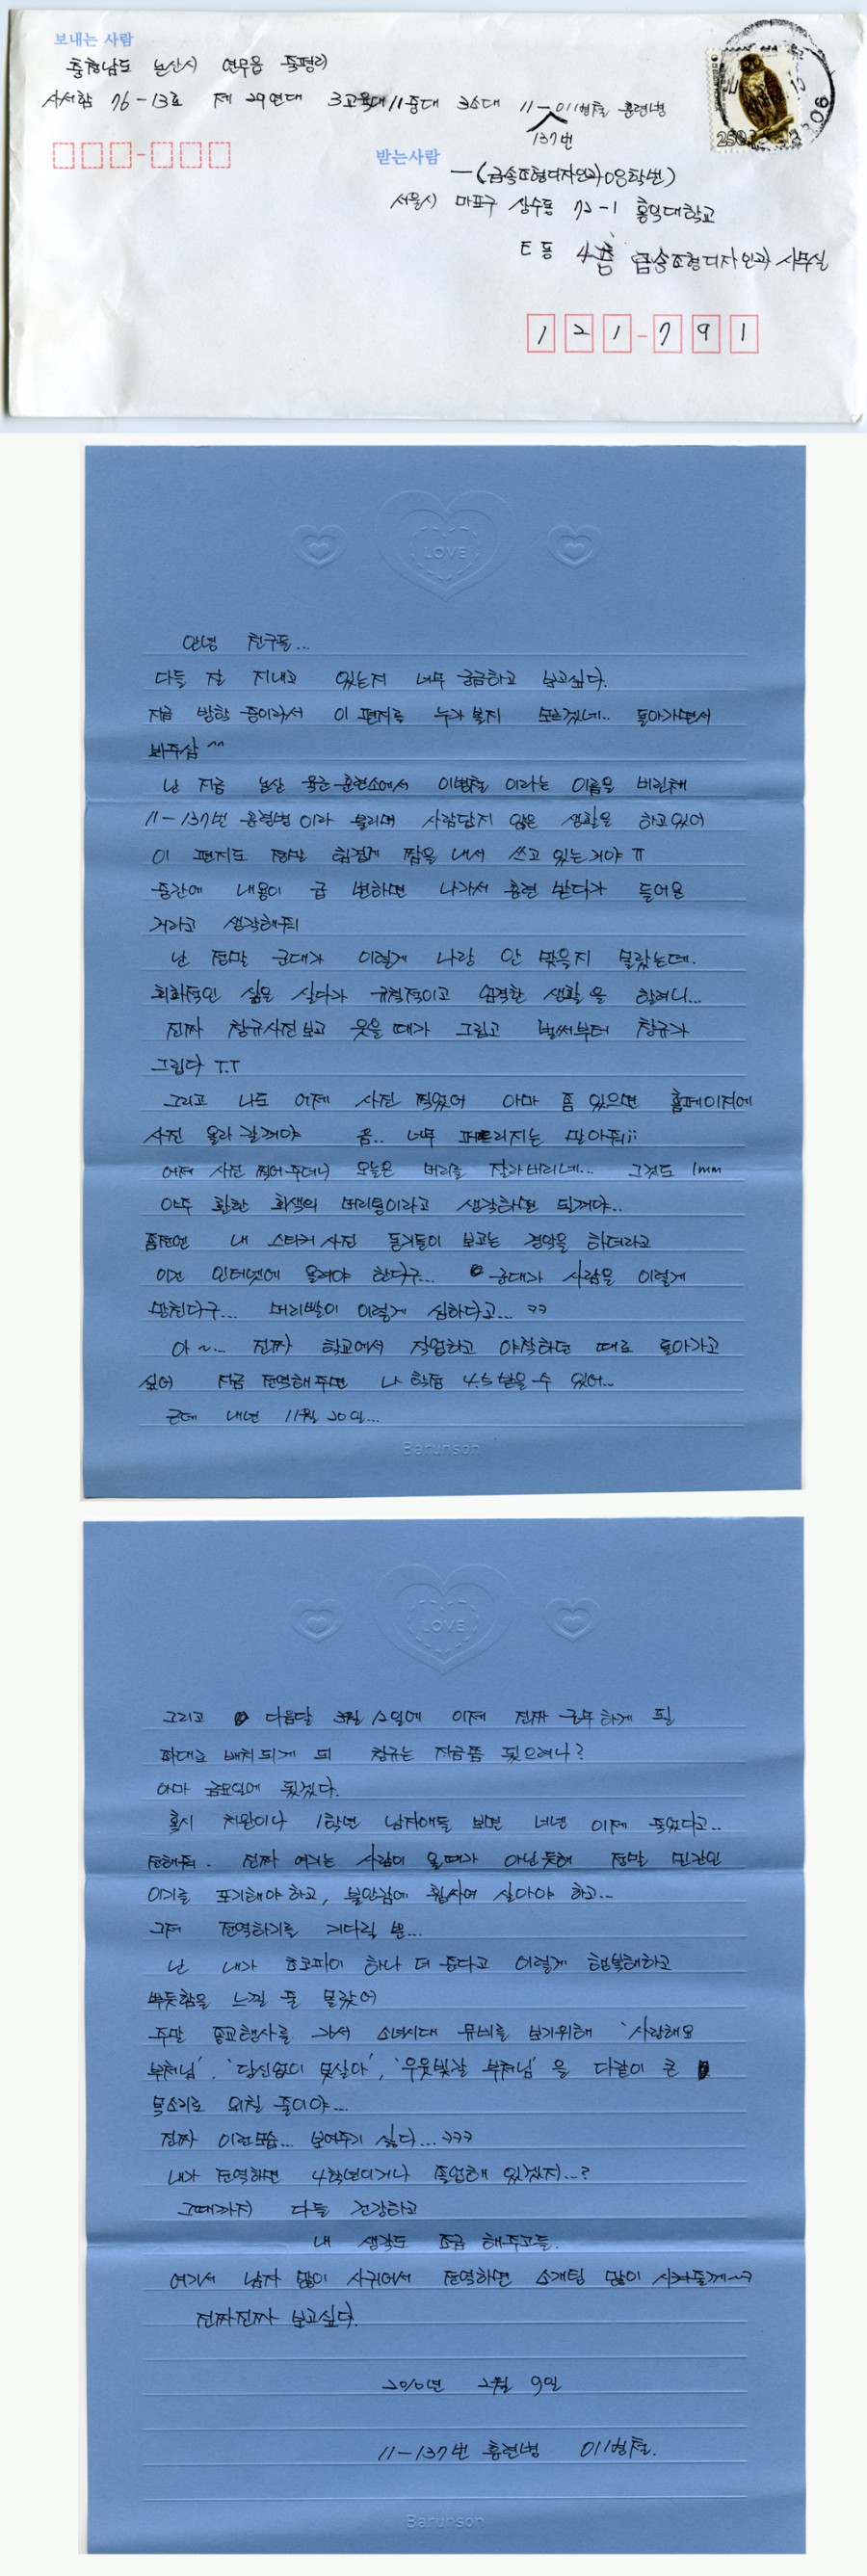 보내는 사람
충청남도 논산시 연무읍 죽평리
사서함 76-13호 제 29연대 3교육대 11중대 3소대 11- 훈련병
137번
250
받는사람
(금속조형디자인과 08학번)
서울시 마포구 상수동 72-1 홍익대학교
E동 4층 금속조형디자인과 사무실
121-791
LOVE
안녕 친구들...
다들 잘 지내고 있는지 너무 궁금하고 보고싶다.
지금 방학 중이라서 이 편지를 누가 볼지 모르겠네.. 돌아가면서
봐주삼 ^^
난 지금 논산 육군훈련소에서 이라는 이름을 버린채
11-137번 훈련병이라 불리며 사람답지 않은 생활을 하고있어
이 편지도 정말 힘겹게 짬을 내서 쓰고 있는거야 ㅠ
중간에 내용이 급 변하면 나가서 훈련 받다가 들어온
거라고 생각해줘
난 정말 군대가 이렇게 나랑 안 맞을지 몰랐는데.
회화적인 삶을 살다가 규칙적이고 엄격한 생활을 할려니...
진짜 창규사진보고 웃을 때가 그립고 벌써부터 창규가
그립다 T.T
그리고 나도 어제 사진 찍었어 아마 좀 있으면 홈페이지에
사진 올라 갈꺼야 음.. 너무 퍼트리지는 말아줘;;
어제 사진 찍어주더니 오늘은 머리를 잘라버리네... 그것도 1mm
아주 환한 회색의 머리통이라고 생각하면 될꺼야..
좀전엔 내 스티커사진 동기들이 보고는 경악을 하더라고
이건 인터넷에 올려야 한다구... 군대가 사람을 이렇게
망친다구... 머리빨이 이렇게 심하다고... ㅋㅋ
아~... 진짜 학교에서 작업하고 야작하던 때로 돌아가고
싶어 지금 전역해주면 나 학점 4.5 받을 수 있어..
근데 내년 11월 20일...
Barunson
LOVE
그리고 다음달 3월 12일에 이제 진짜 근무하게 될
자대로 배치되게 되 창규는 지금쯤 됐으려나?
아마 금요일에 됐겠다.
혹시 치완이나 1학년 남자애들 보면 너넨 이제 죽었다고..
전해줘. 진짜 여기는 사람이 올때가 아닌듯해 정말 민간인
이기를 포기해야 하고, 불안감에 휩싸여 살아야 하고...
그저 전역하기를 기다릴 뿐...
난 내가 초코파이 하나 더 준다고 이렇게 행복해하고
뿌듯함을 느낄 줄 몰랐어
주말 종교행사를 가서 소녀시대 뮤비를 보기위해 '사랑해요
부처님', '당신없이 못살아', '우윳빛깔 부처님' 을 다같이 큰
목소리로 외칠 줄이야...
진짜 이런모습... 보여주기 싫다...ㅋㅋㅋ
내가 전역하면 4학년이거나 졸업해 있겠지...?
그때까지 다들 건강하고
내 생각도 조금 해주고들.
여기서 남자 많이 사귀어서 전역하면 소개팅 많이 시켜줄께~
진짜진짜 보고싶다.
2010년 2월 9일
11-137번 훈련병
Barunson